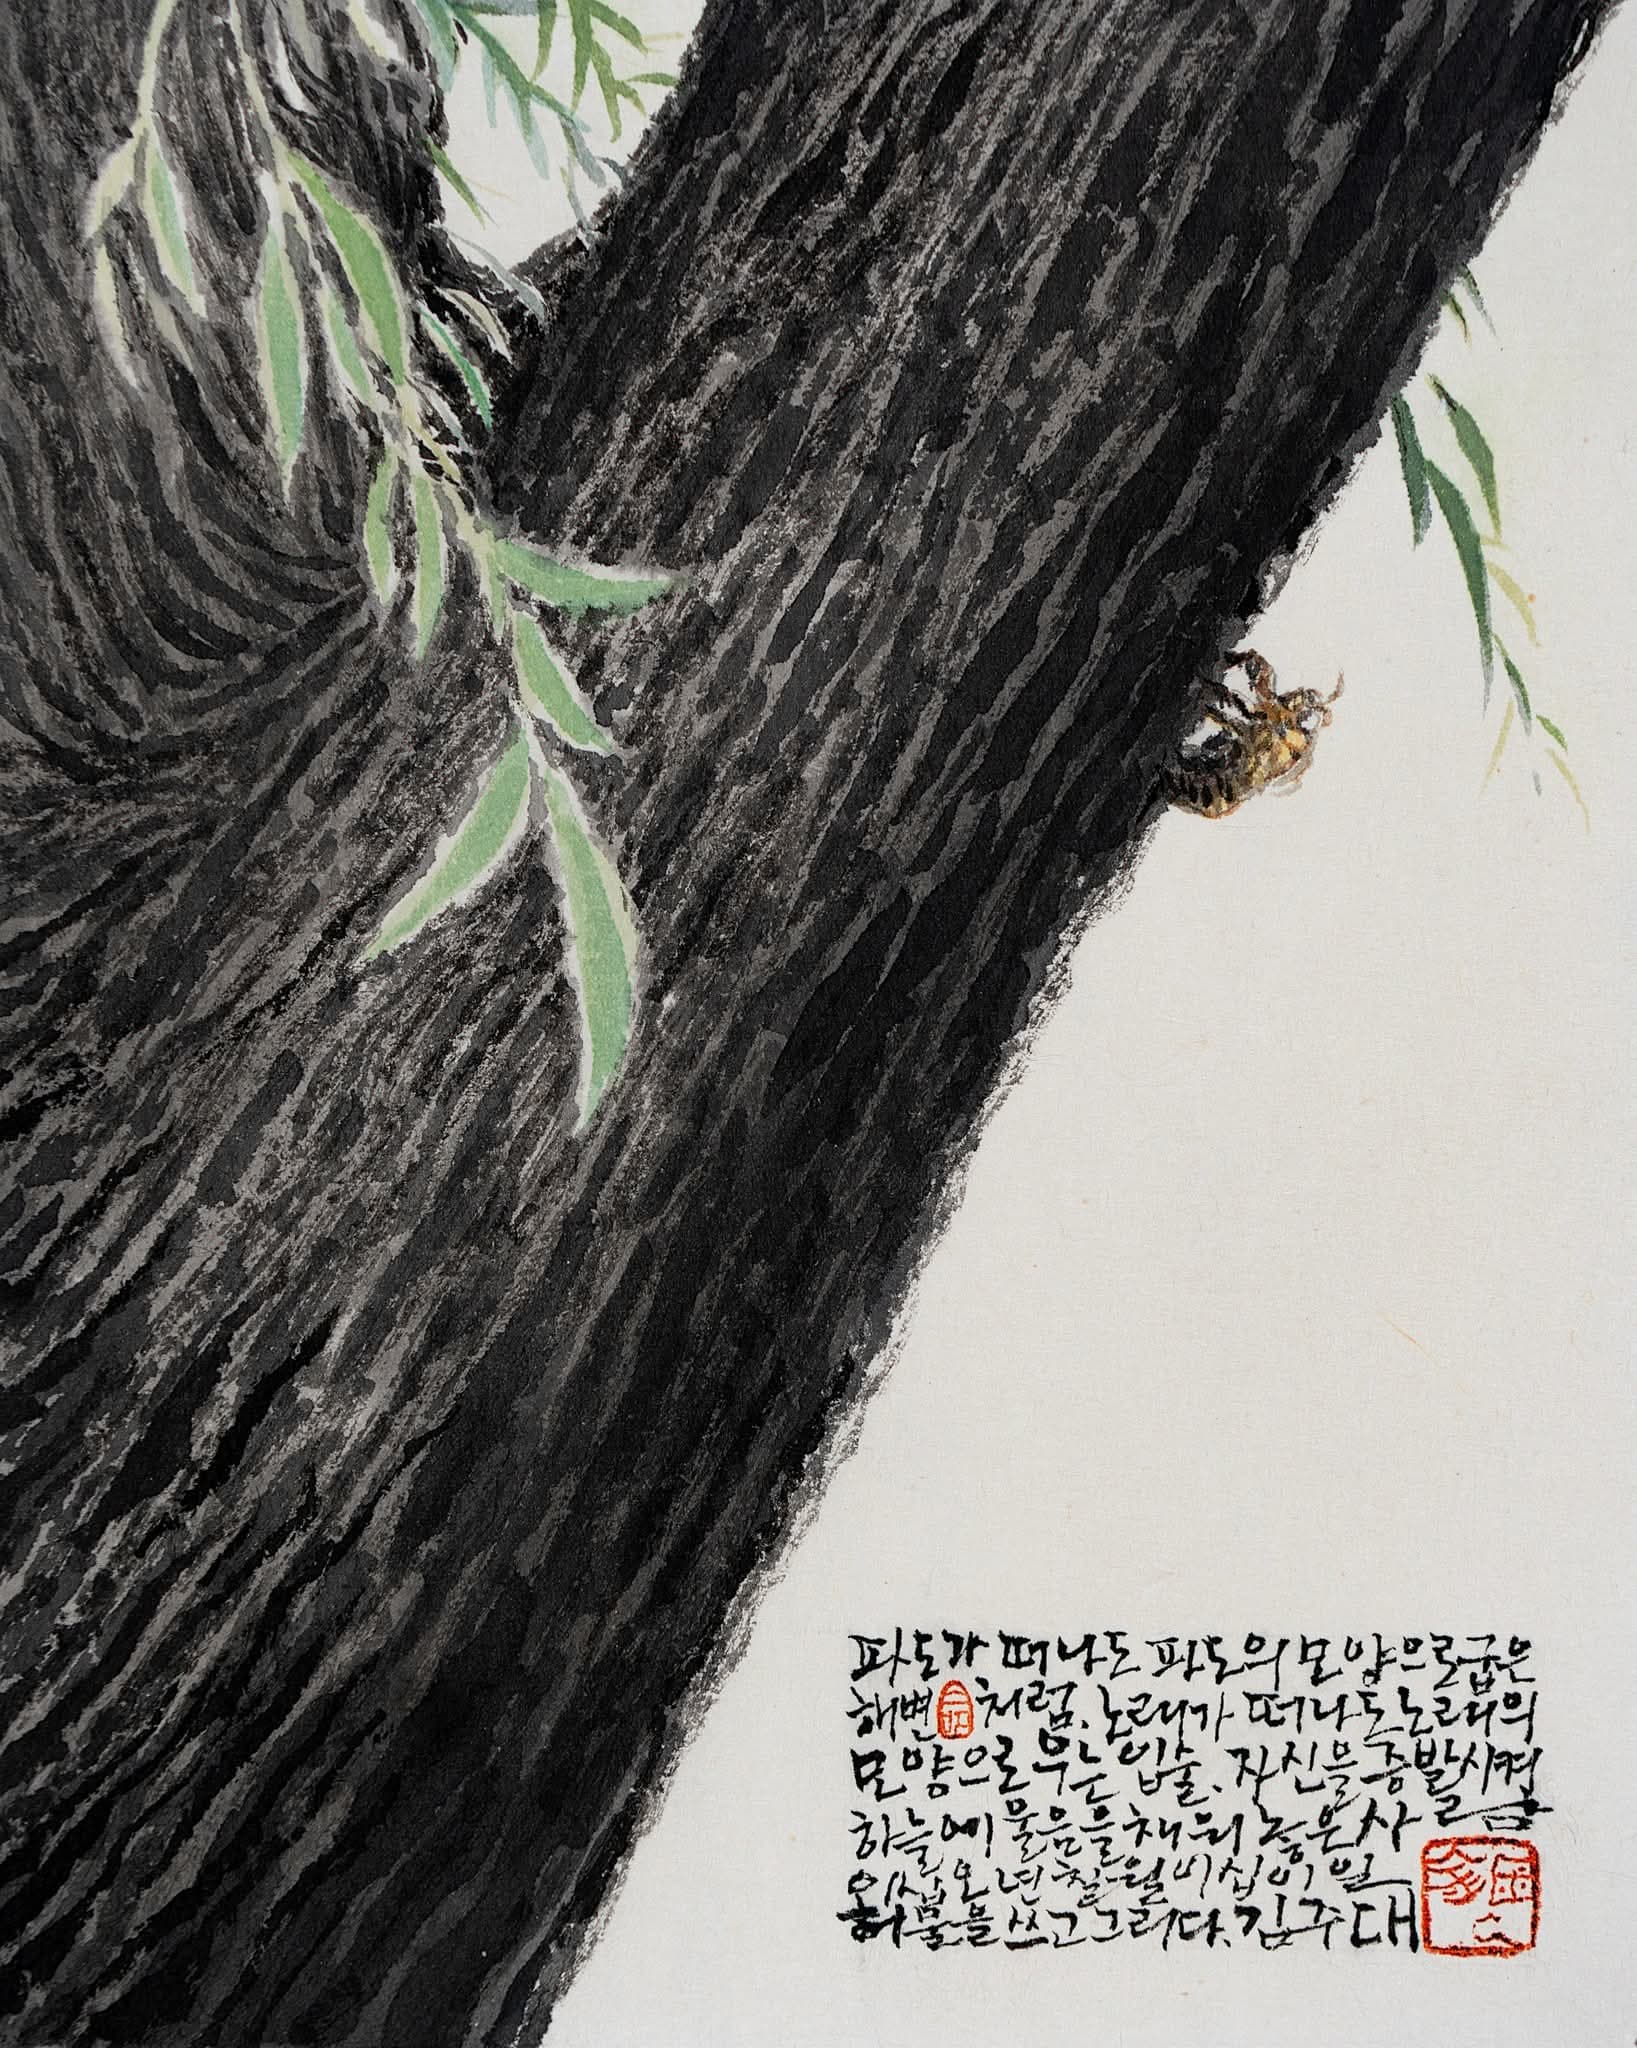 파도가 떠나도 파도의 모양으로 굽은
해변처럼. 노래가 떠나도 노래의
모양으로 우는 입술. 자신을 증발시켜
하늘에 울음을 채워 놓은
이십오년 칠월 이십이일
허물을 쓰고 그리다. 김주대